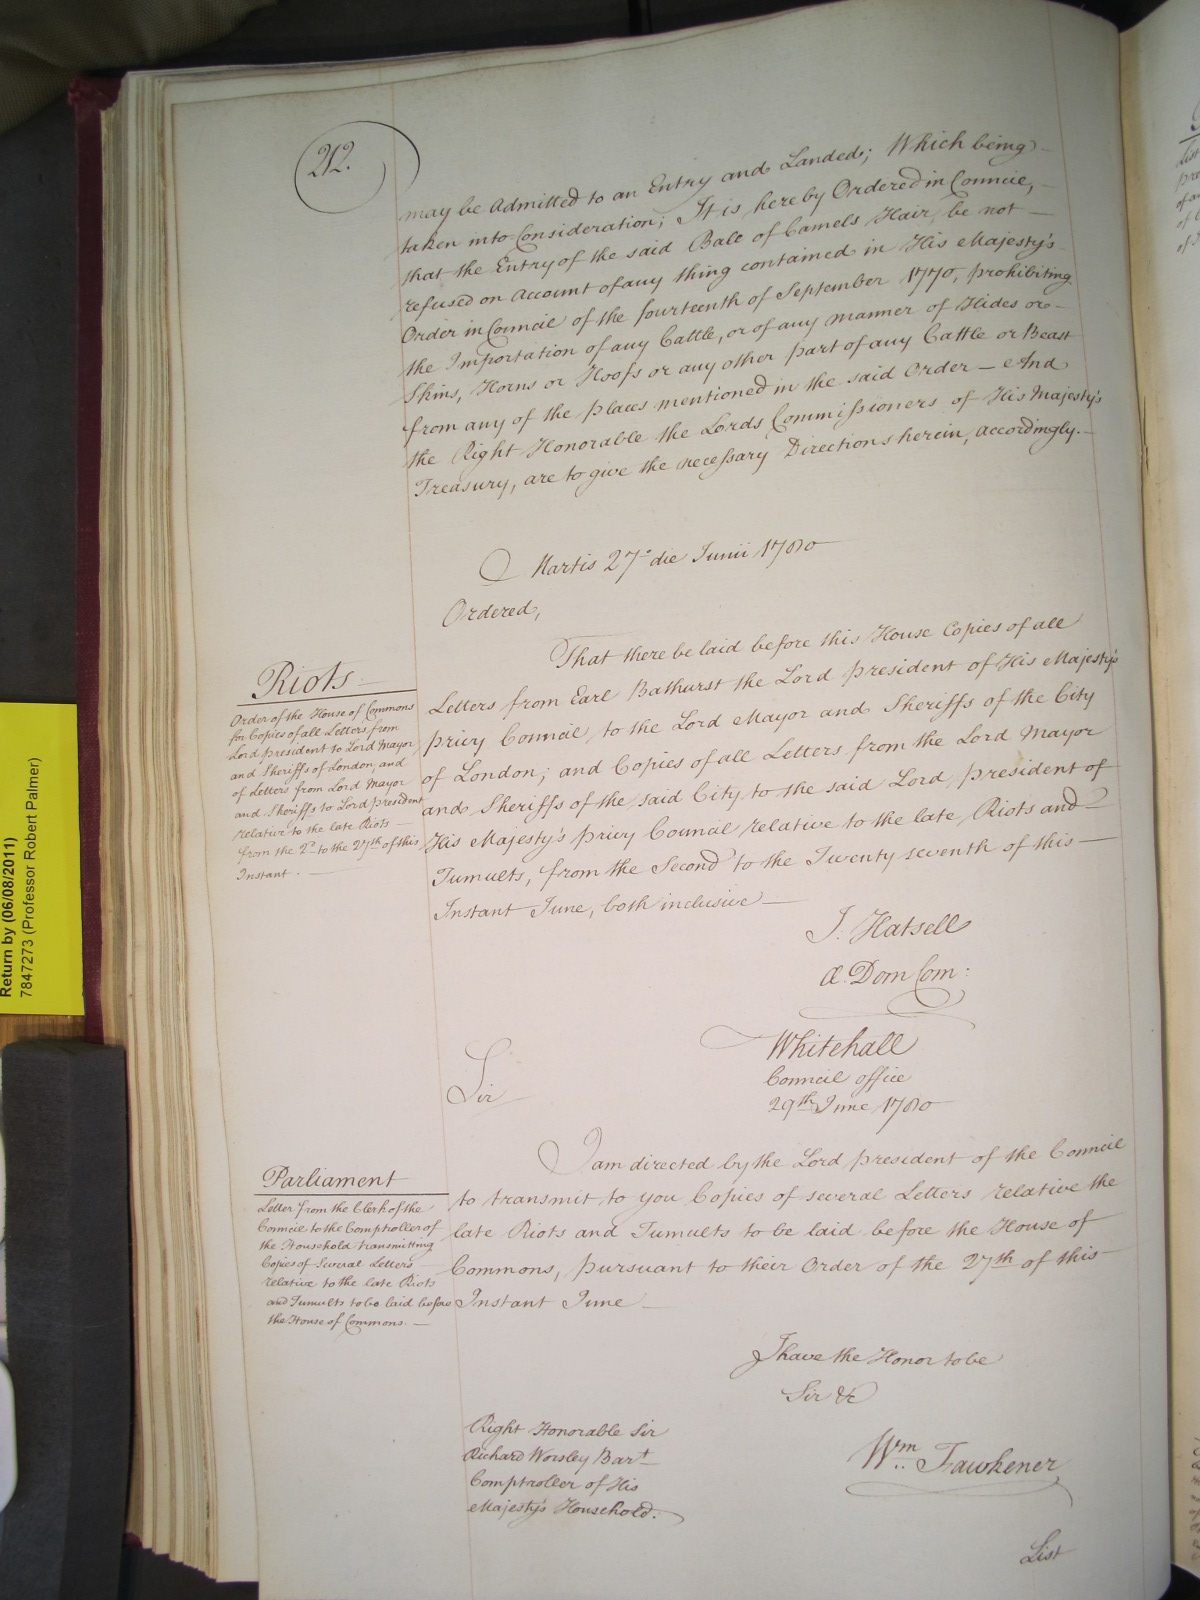 212.
may be Admitted to an Entry and Landed; Which being
taken into Consideration; It is hereby Ordered in Council,
that the Entry of the said Bale of Camels Hair, be not
refused on Account of any thing contained in His Majesty's
Order in Council of the fourteenth of September 1770, prohibiting
the Importation of any Cattle, or of any manner of Hides or
Skins, Horns or Hoofs or any other part of any Cattle or Beast
from any of the places mentioned in the said Order — And
the Right Honorable the Lords Commissioners of His Majesty's
Treasury, are to give the necessary Directions herein, accordingly. —
Martis 27° die Junii 1780
Ordered,
That there be laid before this House Copies of all
Letters from Earl Bathurst the Lord President of His Majesty's
privy Council, to the Lord Mayor and Sheriffs of the City
of London; and Copies of all Letters from the Lord Mayor
and Sheriffs of the said City to the said Lord president of
His Majesty's privy Council relative to the late Riots and
Tumults, from the Second to the Twenty seventh of this
Instant June, both inclusive —
Riots
Order of the House of Commons
for Copies of all Letters from
Lord president to Lord Mayor
and Sheriffs of London, and
of Letters from Lord Mayor
and Sheriffs to Lord president
relative to the late Riots —
from the 2d to the 27th of this
Instant. —
J. Hatsell
Cl. Dom Com:
Whitehall
Council office
29th June 1780
Sir
I am directed by the Lord president of the Council
to transmit to you Copies of several Letters relative the
late Riots and Tumults to be laid before the House of
Commons, pursuant to their Order of the 27th of this
Instant June —
Parliament
Letter from the Clerk of the
Council to the Comptroller of
the Household transmitting
Copies of several Letters
relative to the late Riots
and Tumults to be laid before
the House of Commons. —
I have the Honor to be
Sir &c
Wm. Fawkener
Right Honorable Sir
Richard Worsley Bart
Comptroller of His
Majesty's Household.
List
Return by (06/08/2011)
7847273 (Professor Robert Palmer)